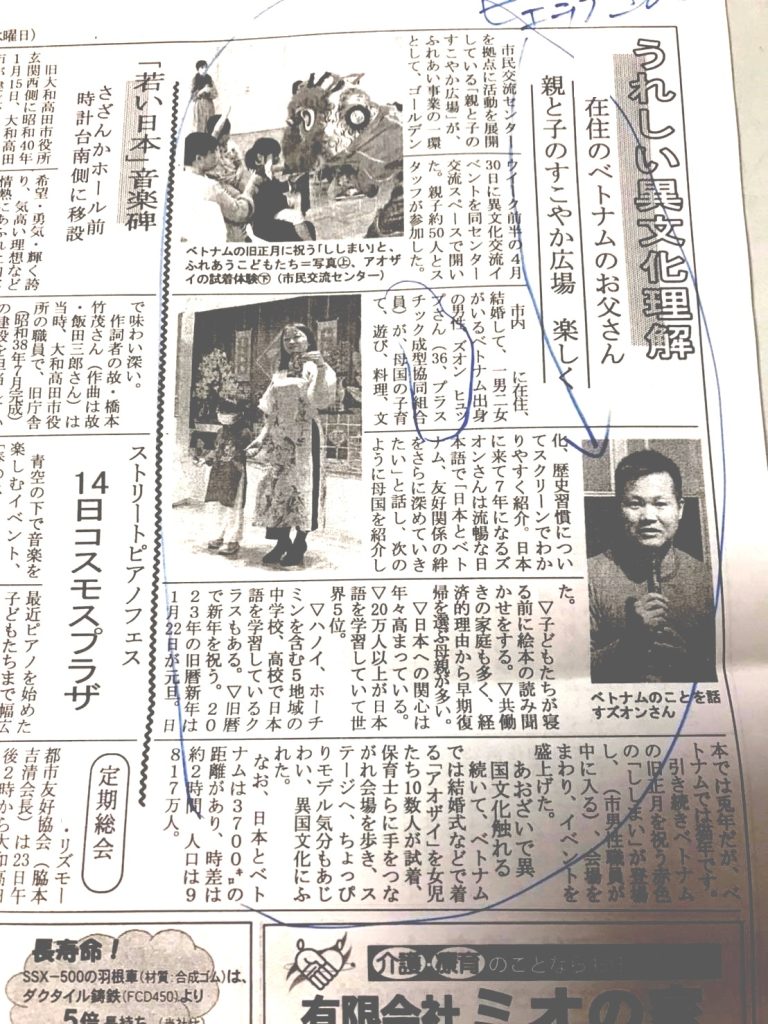 うれしい異文化理解
在住のベトナムのお父さん
親と子のすこやか広場　楽しく
市民交流センター
を拠点に活動を展開
している「親と子の
すこやか広場」が、
ふれあい事業の一環
として、ゴールデン
ウイーク前半の４月
30日に異文化交流イ
ベントを同センター
交流スペースで開い
た。親子約50人とス
タッフが参加した。
ベトナムの旧正月に祝う「ししまい」と、
ふれあうこどもたち＝写真㊤、アオザ
イの試着体験㊦（市民交流センター）
市内　に在住、
結婚して、一男二女
がいるベトナム出身
の男性、ズオン ヒュッ
プさん（36、プラス
チック成型協同組合
員）が、母国の子育
て、遊び、料理、文
化、歴史習慣につい
てスクリーンでわか
りやすく紹介。日本
に来て７年になるズ
オンさんは流暢な日
本語で「日本とベト
ナム、友好関係の絆
をさらに深めていき
たい」と話し、次の
ように母国を紹介し
た。
▽子どもたちが寝
る前に絵本の読み聞
かせをする。▽共働
きの家庭も多く、経
済的理由から早期復
帰を選ぶ母親が多い。
▽日本への関心は
年々高まっている。
▽20万人以上が日本
語を学習していて世
界５位。
▽ハノイ、ホーチ
ミンを含む５地域の
中学校、高校で日本
語を学習しているク
ラスもある。▽旧暦
で新年を祝う。20
23年の旧暦新年は
１月22日が元旦。日
本では兎年だが、ベ
トナムでは猫年です。
引き続きベトナム
の旧正月を祝う赤色
の「ししまい」が登場
し、（市男性職員が
中に入る）、会場を
まわり、イベントを
盛上げた。
あおざいで異
国文化触れる
続いて、ベトナム
では結婚式などで着
る「アオザイ」を女児
たち10数人が試着、
保育士らに手をつな
がれ会場を歩き、ス
テージへ、ちょっぴ
りモデル気分もあじ
わい、異国文化にふ
れた。
なお、日本とベト
ナムは3700㌔の
距離があり、時差は
約２時間、人口は９
817万人。
ベトナムのことを話
すズオンさん
「若い日本」音楽碑
さざんかホール前
時計台南側に移設
旧大和高田市役所
玄関西側に昭和40年
１月15日、大和高田
希望・勇気・輝く誇
り、気高い理想など
で味わい深い。
作詞者の故・橋本
竹茂さん（作曲は故
・飯田三郎さん）は
当時、大和高田市役
所の職員で、旧庁舎
（昭和38年７月完成）
ストリートピアノフェス
14日コスモスプラザ
青空の下で音楽を
楽しむイベント、
最近ピアノを始めた
子どもたちまで幅広
定期総会
・リズモー
都市友好協会（脇本
吉清会長）は23日午
後２時から大和高田
長寿命！
SSX－500の羽根車（材質：合成ゴム）は、
ダクタイル鋳鉄（FCD450）より
５倍長持ち
介護・療育のことなら
有限会社ミオの